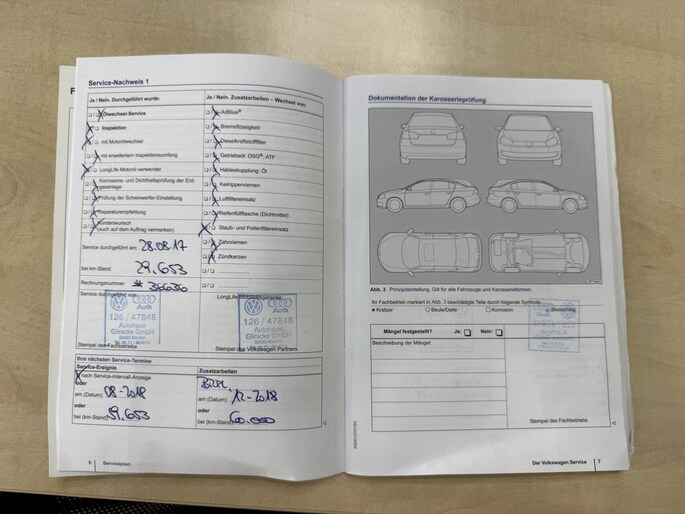 Service-Nachweis 1
Ja / Nein. Durchgeführt wurde:
Ölwechsel-Service
Inspektion
mit Motorölwechsel
mit erweitertem Inspektionsumfang
LongLife Motoröl verwendet
Korrosions- und Dichtheitsprüfung der Erd-
gasanlage
Prüfung der Scheinwerfer-Einstellung
Reparaturempfehlung
Kundenwunsch
(auch auf dem Auftrag vermerken)
Service durchgeführt am: 28.08.17
bei km-Stand: 29.653
Rechnungsnummer: # 36636
Service durchgeführt von:
126 / 47848
Autohaus
Glinicke GmbH
Stempel des Fachbetriebs
Ja / Nein. Zusatzarbeiten – Wechsel von:
AdBlue®
Bremsflüssigkeit
Dieselkraftstofffilter
Getriebeöl: DSG®, ATF
Haldexkupplung: Öl
Keilrippenriemen
Luftfiltereinsatz
Reifenfüllflasche (Dichtmittel)
Staub- und Pollenfiltereinsatz
Zahnriemen
Zündkerzen
Audi
126 / 47848
Autohaus
Glinicke GmbH
Stempel des Volkswagen Partners
Ihre nächsten Service-Termine
Service-Ereignis
nach Service-Intervall-Anzeige
oder
am (Datum) 08-2018
oder
bei (km-Stand) 59.653
Zusatzarbeiten
am (Datum) 12-2018
oder
bei (km-Stand) 60.000
6 Serviceplan
Dokumentation der Karosserieprüfung
Abb. 3 Prinzipdarstellung. Gilt für alle Fahrzeuge und Karosserieformen.
Ihr Fachbetrieb markiert in Abb. 3 beschädigte Teile durch folgende Symbole:
Kratzer Beule/Delle Korrosion Steinschlag
Mängel festgestellt? Ja: Nein:
Beschreibung der Mängel:
Stempel des Fachbetriebs
Der Volkswagen Service 7